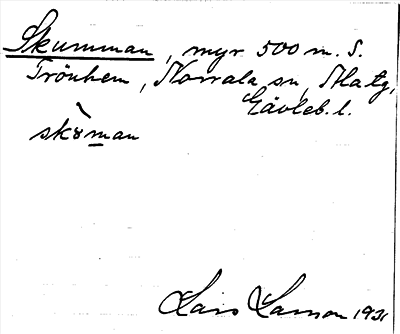 Skumman, myr 500 m. S.
Trönhem, Norrala sn,
Gävleb. l.
skȣman
Lars Larson 1931